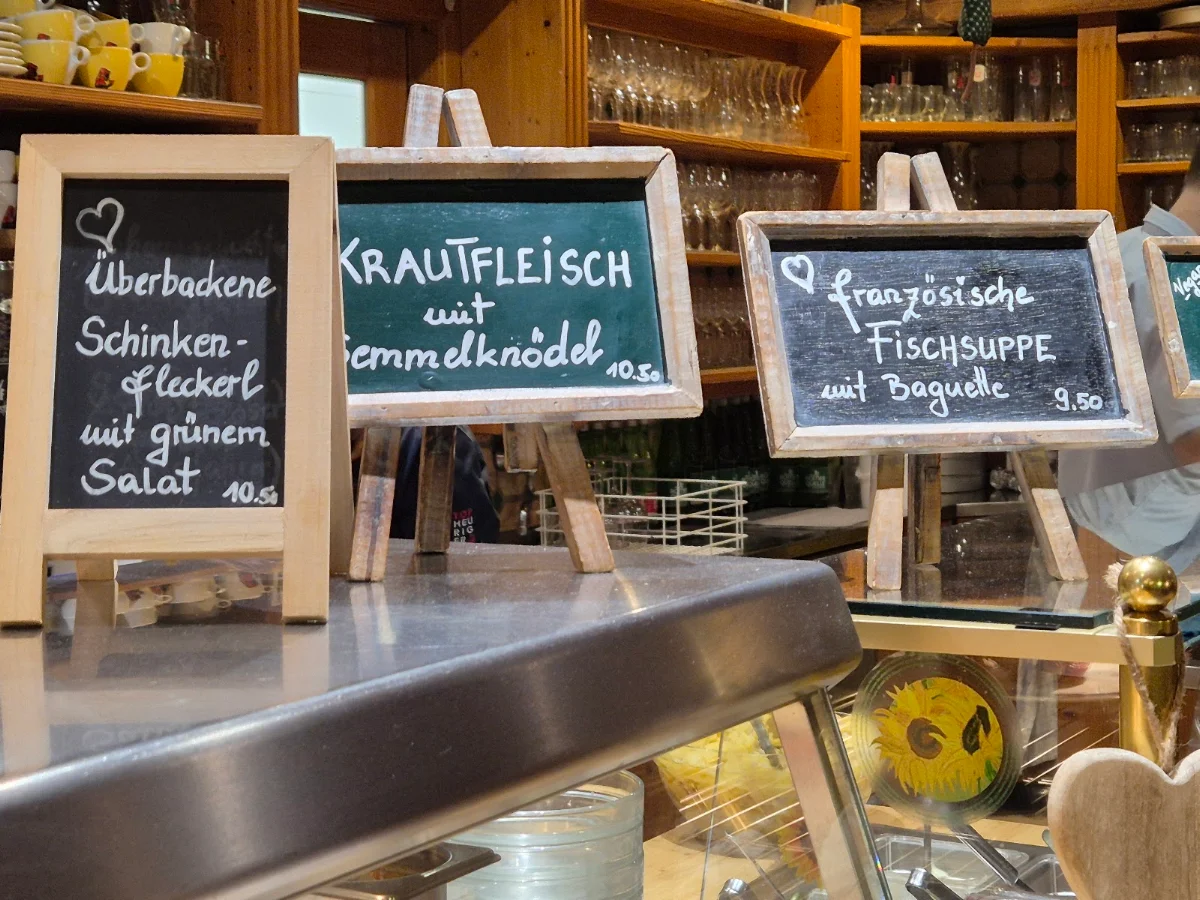 Überbackene
Schinken-
fleckerl
mit grünem
Salat 10.50
KRAUTFLEISCH
mit
Semmelknödel
10.50
französische
FISCHSUPPE
mit Baguette 9.50
TOP
HEU
RIG
ER